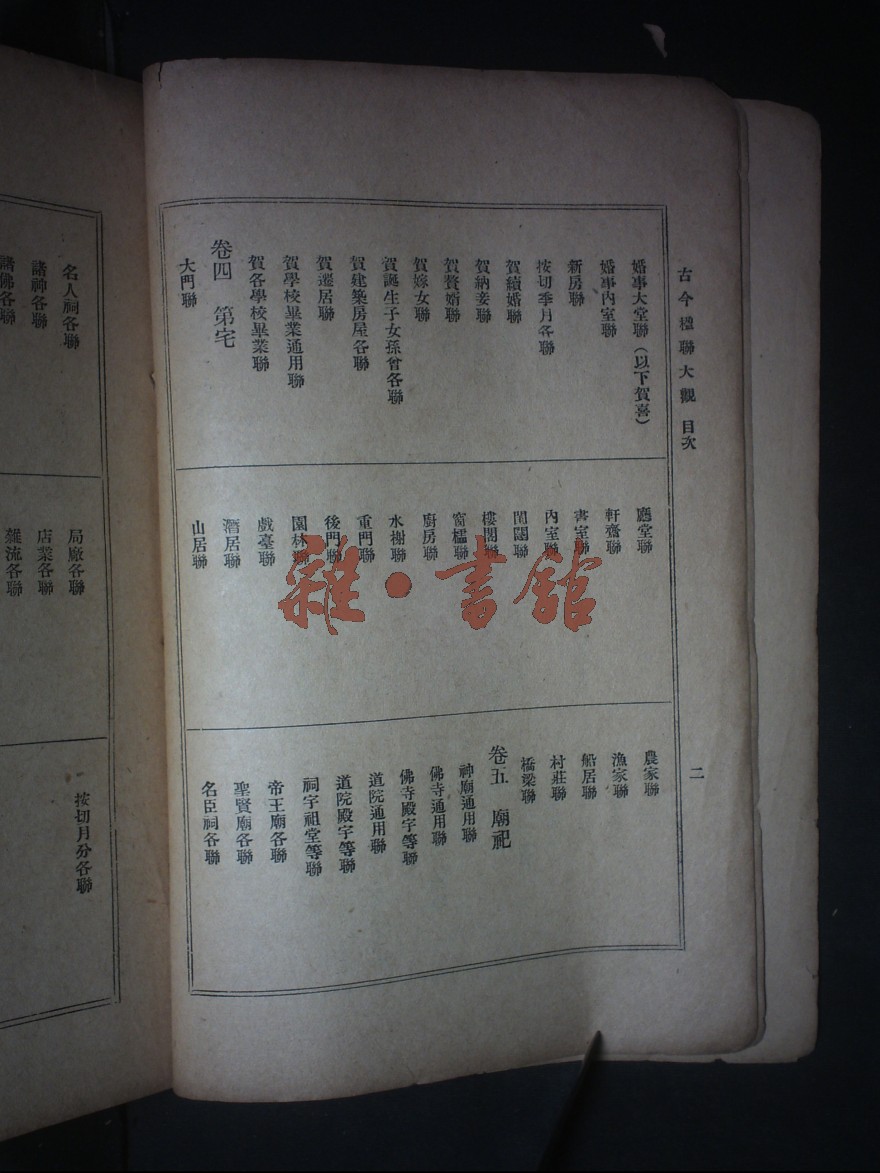 古今楹聯大觀 目次
二
婚事大堂聯（以下賀喜）
婚事內室聯
新房聯
按切季月各聯
賀續婚聯
賀納妾聯
賀贅婿聯
賀嫁女聯
賀誕生子女孫曾各聯
賀建築房屋各聯
賀遷居聯
賀學校畢業通用聯
賀各學校畢業聯
卷四 第宅
大門聯
廳堂聯
軒齋聯
書室聯
內室聯
閨閣聯
樓閣聯
窗櫺聯
廚房聯
水榭聯
重門聯
後門聯
園林聯
戲臺聯
酒居聯
山居聯
農家聯
漁家聯
船居聯
村莊聯
橋梁聯
卷五 廟祀
神廟通用聯
佛寺通用聯
佛寺殿宇等聯
道院通用聯
道院殿宇等聯
祠宇祖堂等聯
帝王廟各聯
聖賢廟各聯
名臣祠各聯
名人祠各聯
諸神各聯
諸佛各聯
局廠各聯
店業各聯
雜流各聯
按切月分各聯
雜·書館